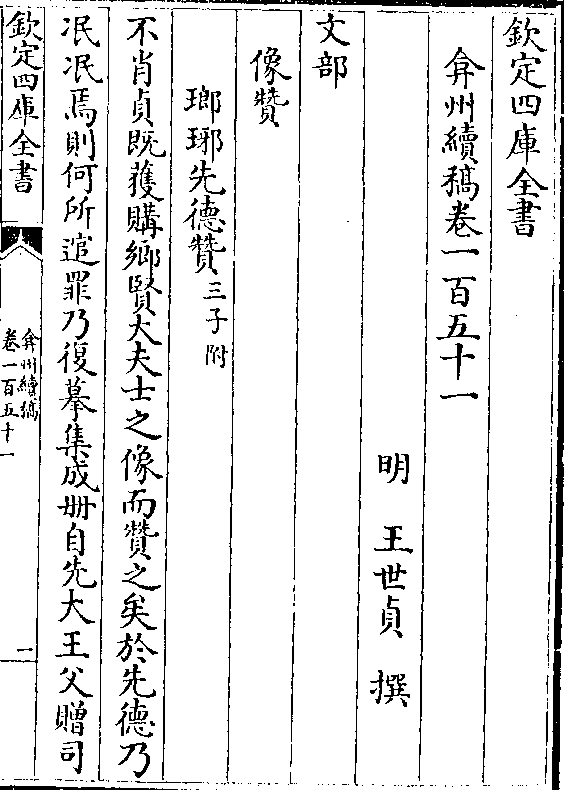 欽定四庫全書
弇州續稿卷一百五十一
明 王世貞 撰
文部
像贊
瑯琊先德贊三子附
不肖貞既獲購鄉賢大夫士之像而贊之矣於先德乃
泯泯焉則何所逭罪乃復摹集成冊自先大王父贈司
欽定四庫全書
弇州續稿
卷一百五十一
一